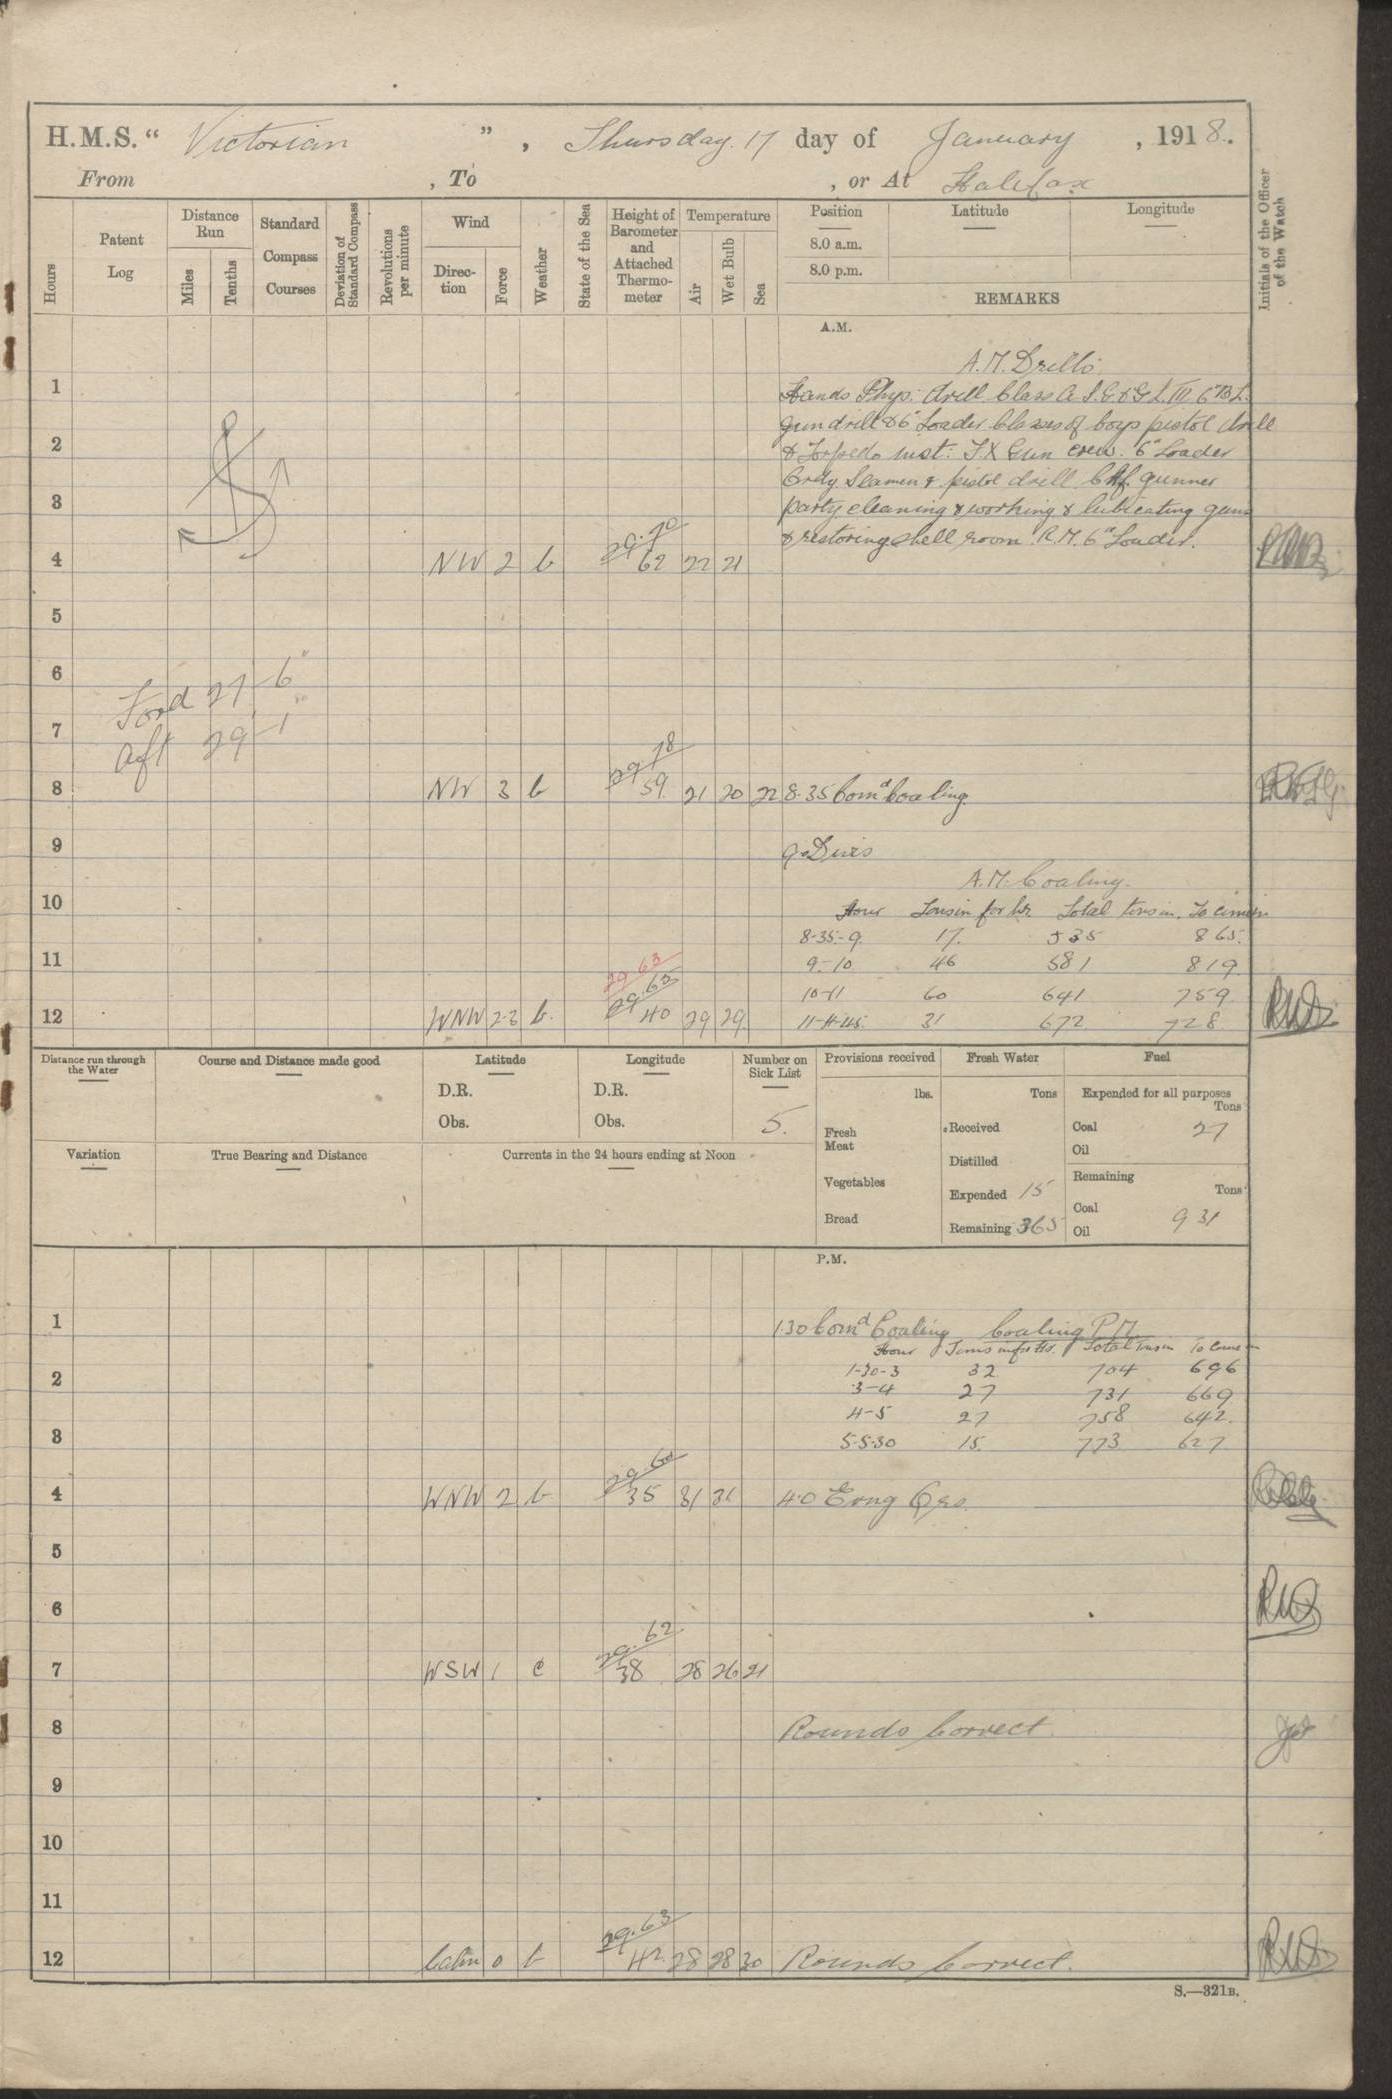 H.M.S. “ Victorian ” , Thursday. 17 day of January , 1918.
From , To , or At Halifax
Hours
Patent Log
Distance Run
Miles
Tenths
Standard Compass Courses
Deviation of Standard Compass
Revolutions per minute
Wind
Direc-tion
Force
Weather
State of the Sea
Height of Barometer and Attached Thermo-meter
Temperature
Air
Wet Bulb
Sea
Position Latitude Longitude
8.0 a.m.
8.0 p.m.
REMARKS
Initials of the Officer of the Watch
A.M.
A.M. Drills
1 Hands Phys: drill Class A S.G. & G.L. III 6" B.L.
gun drill & 6" Loader Classes of boys pistol drill
2 & Torpedo inst: T.X Gun crew. 6" Loader
Ordy Seamen & pistol drill Chf. gunner
3 party cleaning & working & lubricating guns
& restoring shell room. R.M. 6" Loader.
4 NW 2 b 29.70 62 22 21
5
6
Ford 27'-6"
7
aft 29'-1"
8 NW 3 b 29.78 59. 21 20 22 8.35 Comd Coaling
9 9.0 Divis
A.M. Coaling.
10 Hour Tons in for hr Total tons in. To come in
8-35-9. 17. 535 865.
11 9-10 46 581 819
29.63
10-11 60 641 759
12 WNW 2-3 b. 29.65 40 29 29 11-11-45. 31 672 728
Distance run through the Water
Course and Distance made good
Latitude
D.R.
Obs.
Longitude
D.R.
Obs.
Number on Sick List
5.
Variation
True Bearing and Distance
Currents in the 24 hours ending at Noon
Provisions received
lbs.
Fresh Meat
Vegetables
Bread
Fresh Water
Tons
Received
Distilled
Expended 15
Remaining 365
Fuel
Expended for all purposes
Tons
Coal 27
Oil
Remaining
Tons
Coal 931
Oil
P.M.
1 1.30 Comd Coaling Coaling P.M.
Hour Tons in for Hr. Total Tons in To Come in
2 1-30-3 32 704 696
3-4 27 731 669
4-5 27 758 642.
3 5-5.30 15. 773 627
4 WNW 2 b 29.60 35 31 31 4.0 Evng Qrs.
5
6
7 WSW 1 c 29.62 38 28 26 21
8 Rounds Correct
9
10
11
12 Calm 0 b 29.63 42 28 28 30 Rounds Correct.
S.—321B.